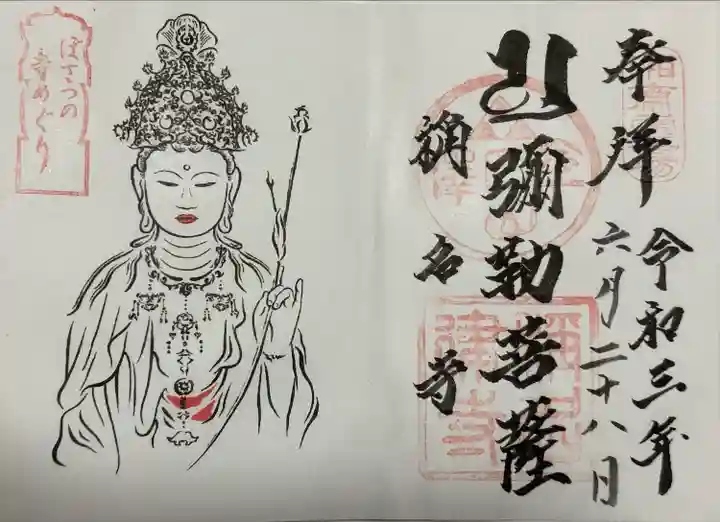 奉拝
令和三年
六月二十八日
彌勒菩薩
稱名寺
ぼさつの
寺めぐり